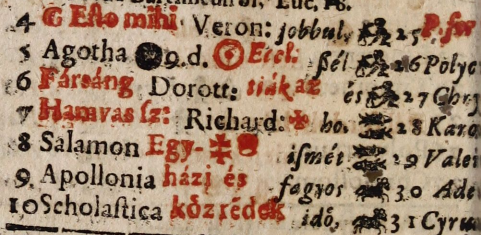 4 G Eſto mihi Veron: jobbul, 25 P.
5 Agotha 9.d. Etel: ſzél 26 Polyc
6 Fársáng Dorott: tiák az és 27 Chry
7 Hamvas ſz: Richard: ho. 28 Karo
8 Salamon Egy- iſmét 29 Valer
9 Apollonia házi és fagyos 30 Ade
10 Scholaſtica közrédek idő, 31 Cyru